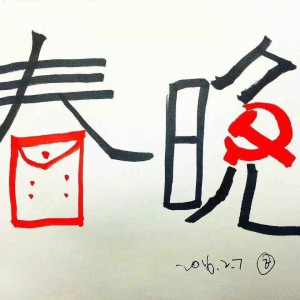 春晚
2016.2.7